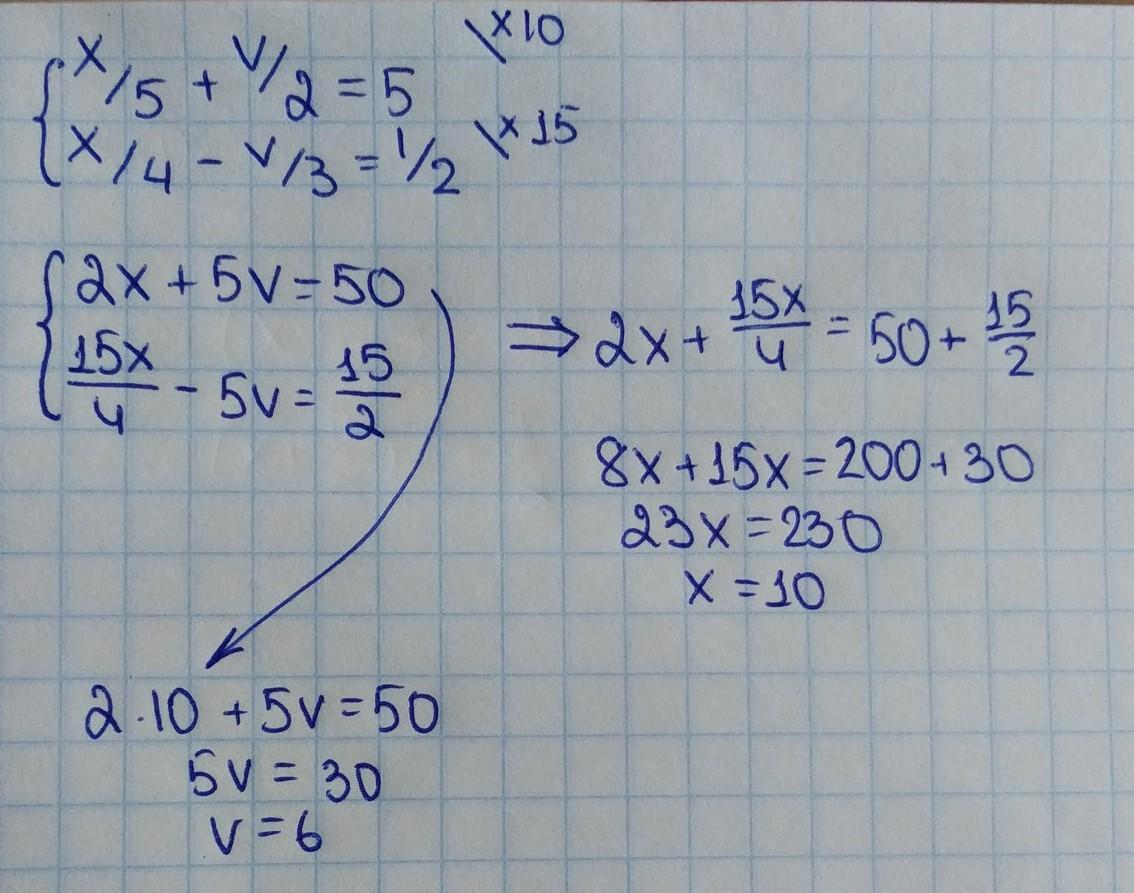 x/5 + v/2 = 5 \x10
x/4 - v/3 = 1/2 \x15
2x + 5v = 50
15x/4 - 5v = 15/2
⇒ 2x + 15x/4 = 50 + 15/2
8x + 15x = 200 + 30
23x = 230
x = 10
2·10 + 5v = 50
5v = 30
v = 6